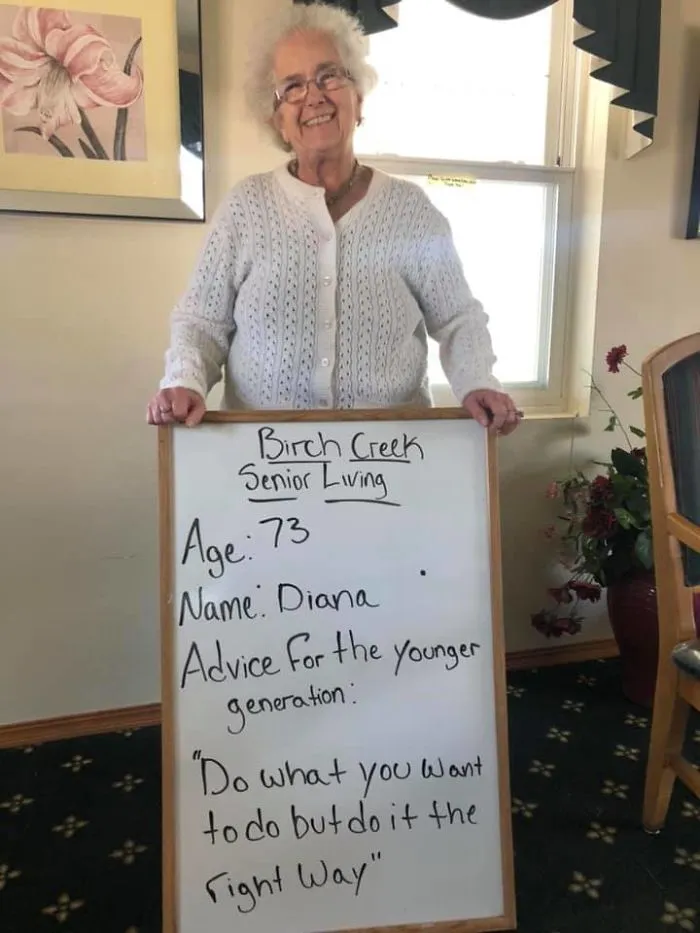 Birch Creek
Senior Living
Age: 73
Name: Diana
Advice for the younger
generation:
"Do what you want
to do but do it the
right way"